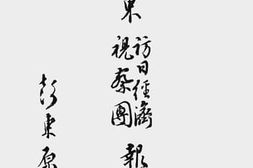 東
訪日經濟
視察團
報
彭東原